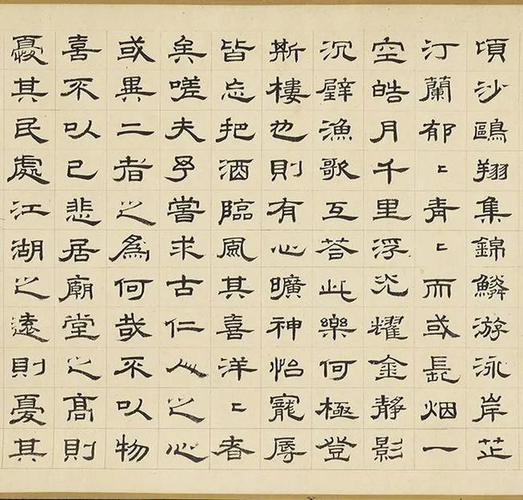 頃沙鷗翔集錦鱗游泳岸芷
汀蘭郁〻青〻而或長烟一
空皓月千里浮光耀金靜影
沉璧漁歌互答此樂何極登
斯樓也則有心曠神怡寵辱
皆忘把酒臨風其喜洋〻者
矣嗟夫予嘗求古仁人之心
或異二者之為何哉不以物
喜不以己悲居廟堂之高則
憂其民處江湖之遠則憂其